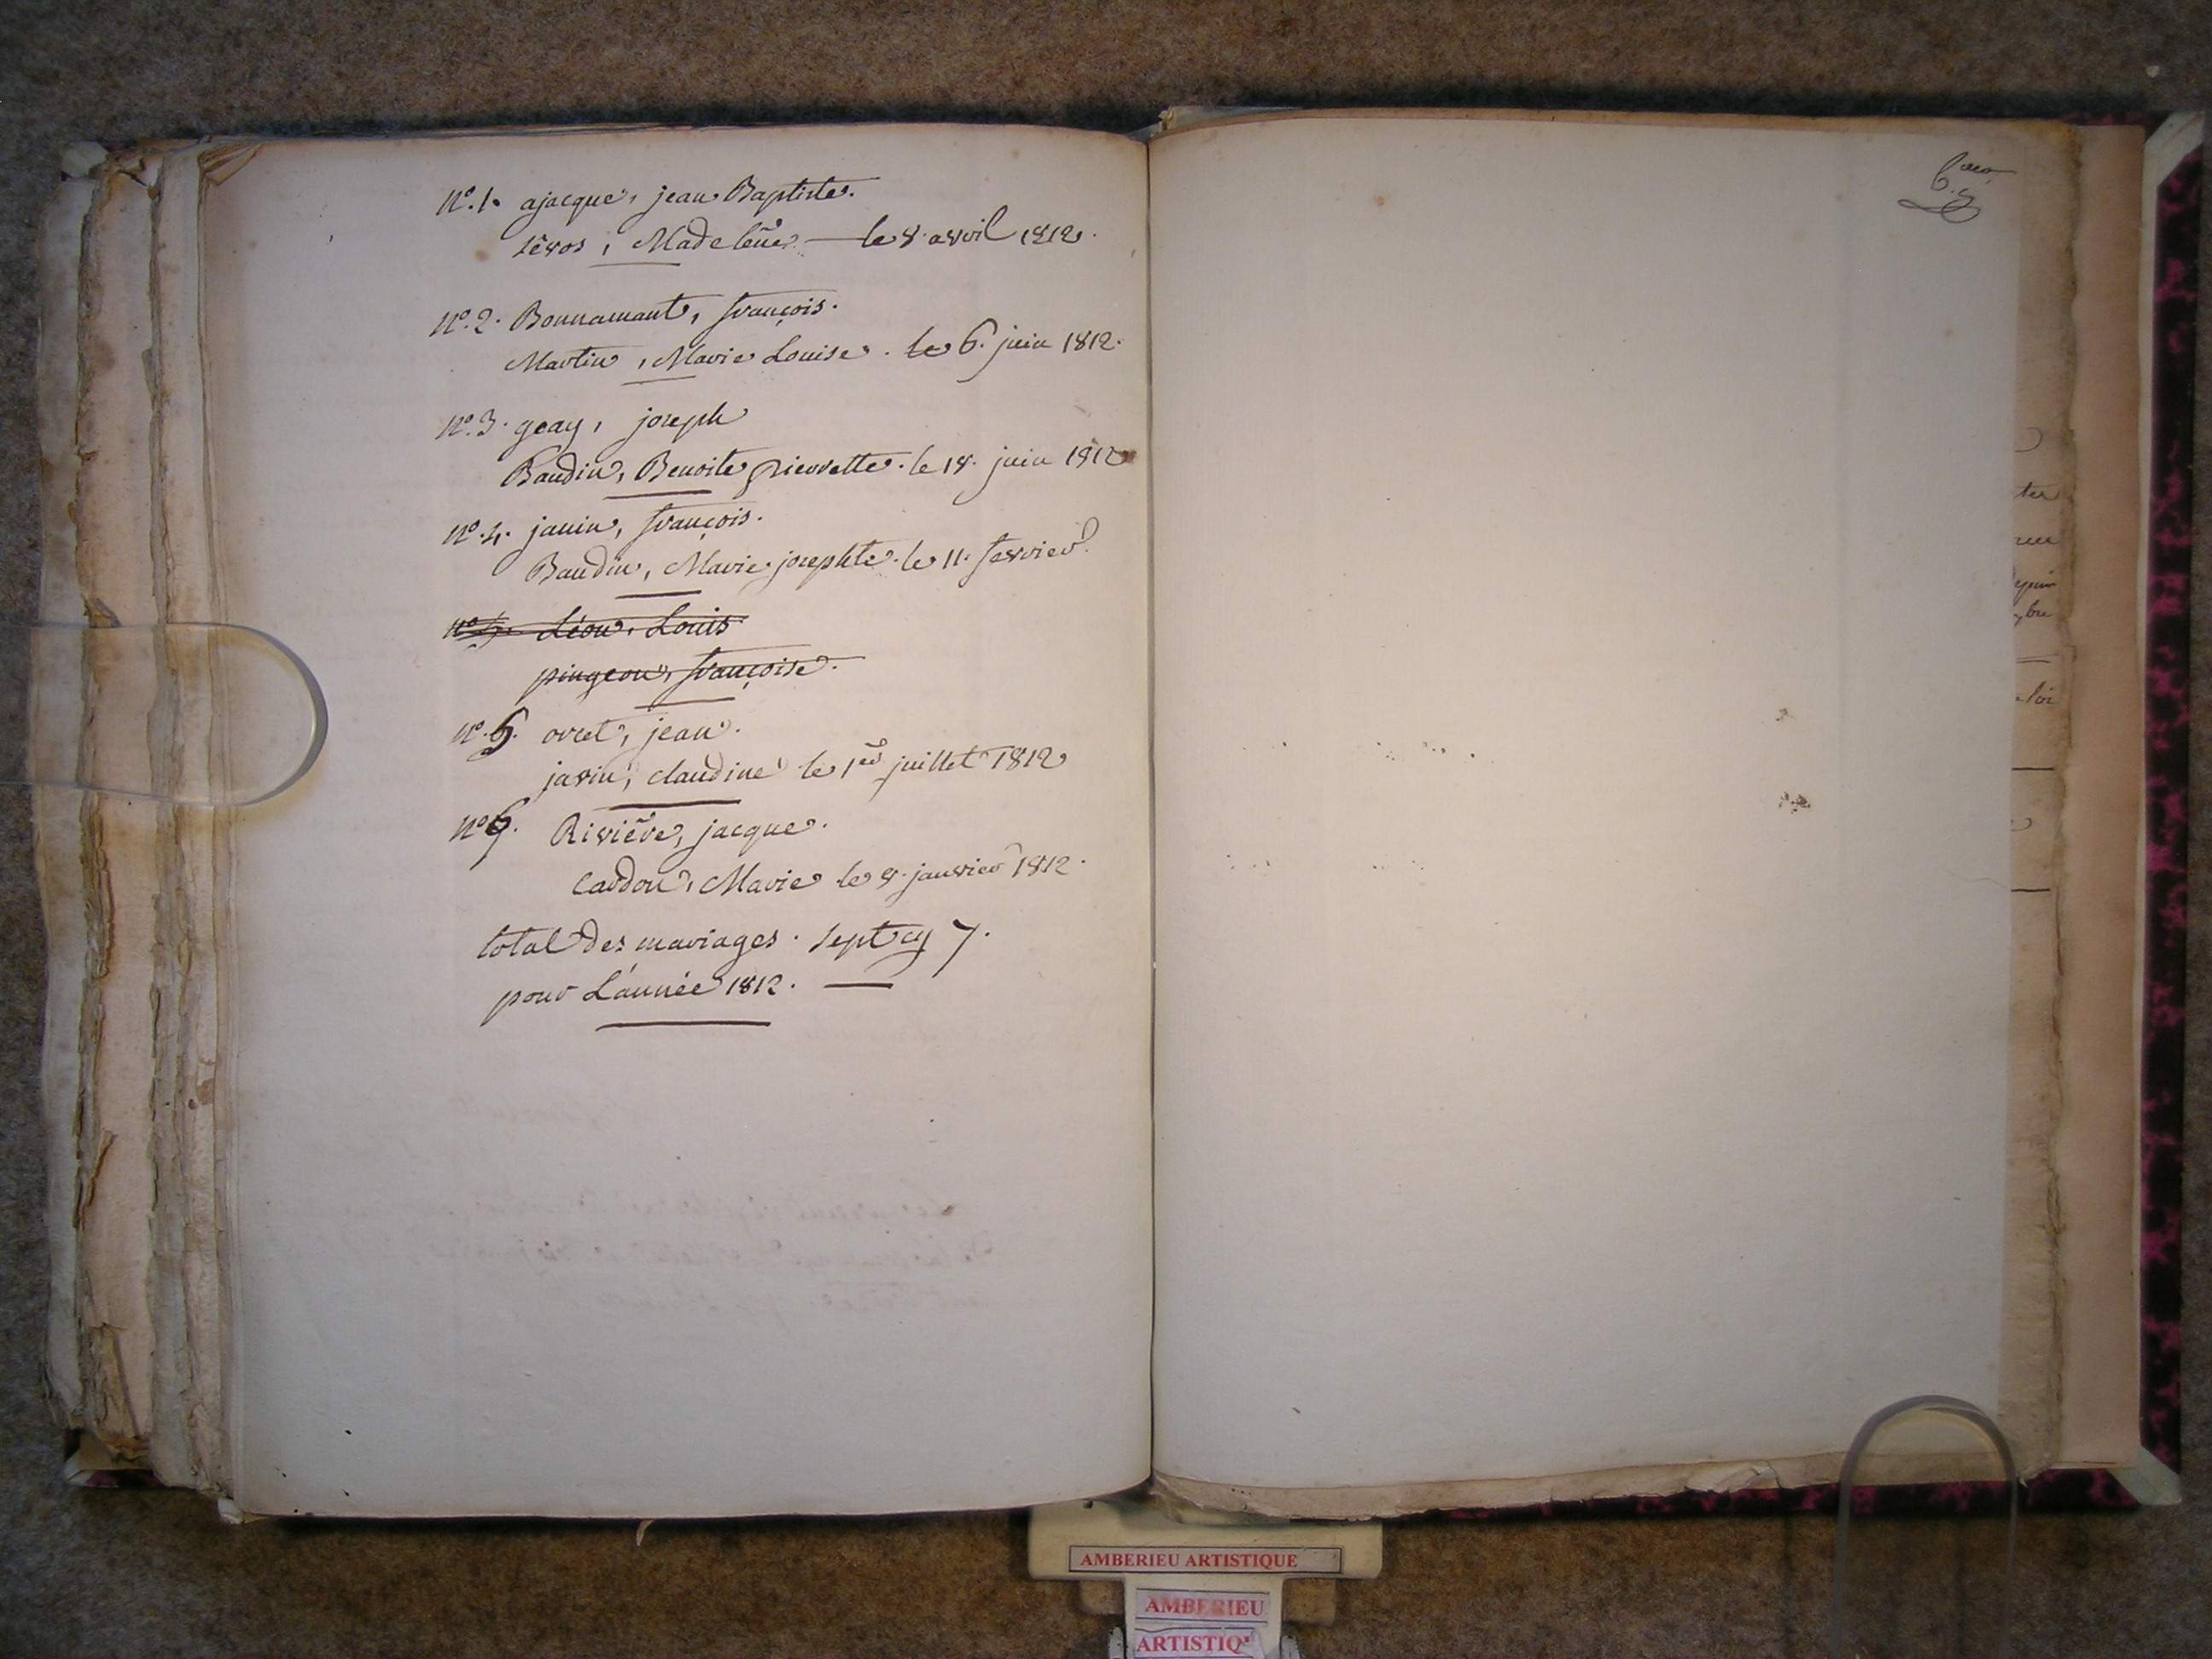 n.º 1. ajacque, jean Baptiste.
sèvos, Madeleine — le 8. avril 1812.
n.º 2. Bonnamant, françois.
Martin, Marie Louise. le 6. juin 1812.
n.º 3. geay, joseph
Baudin, Benoite pierrette. le 18. juin 1812
n.º 4. janin, françois.
Baudin, Marie josephte. le 11. fevrier.
nº 5. Léon, Louis
pingeon, françoise.
n.º 5. orset, jean.
javin, claudine le 1er juillet 1812
nº 6. Rivière, jacque.
Cardon, Marie le 8. janvier 1812.
total des mariages. sept cy 7.
pour L'année 1812.
AMBERIEU ARTISTIQUE
AMBERIEU
ARTISTIQ